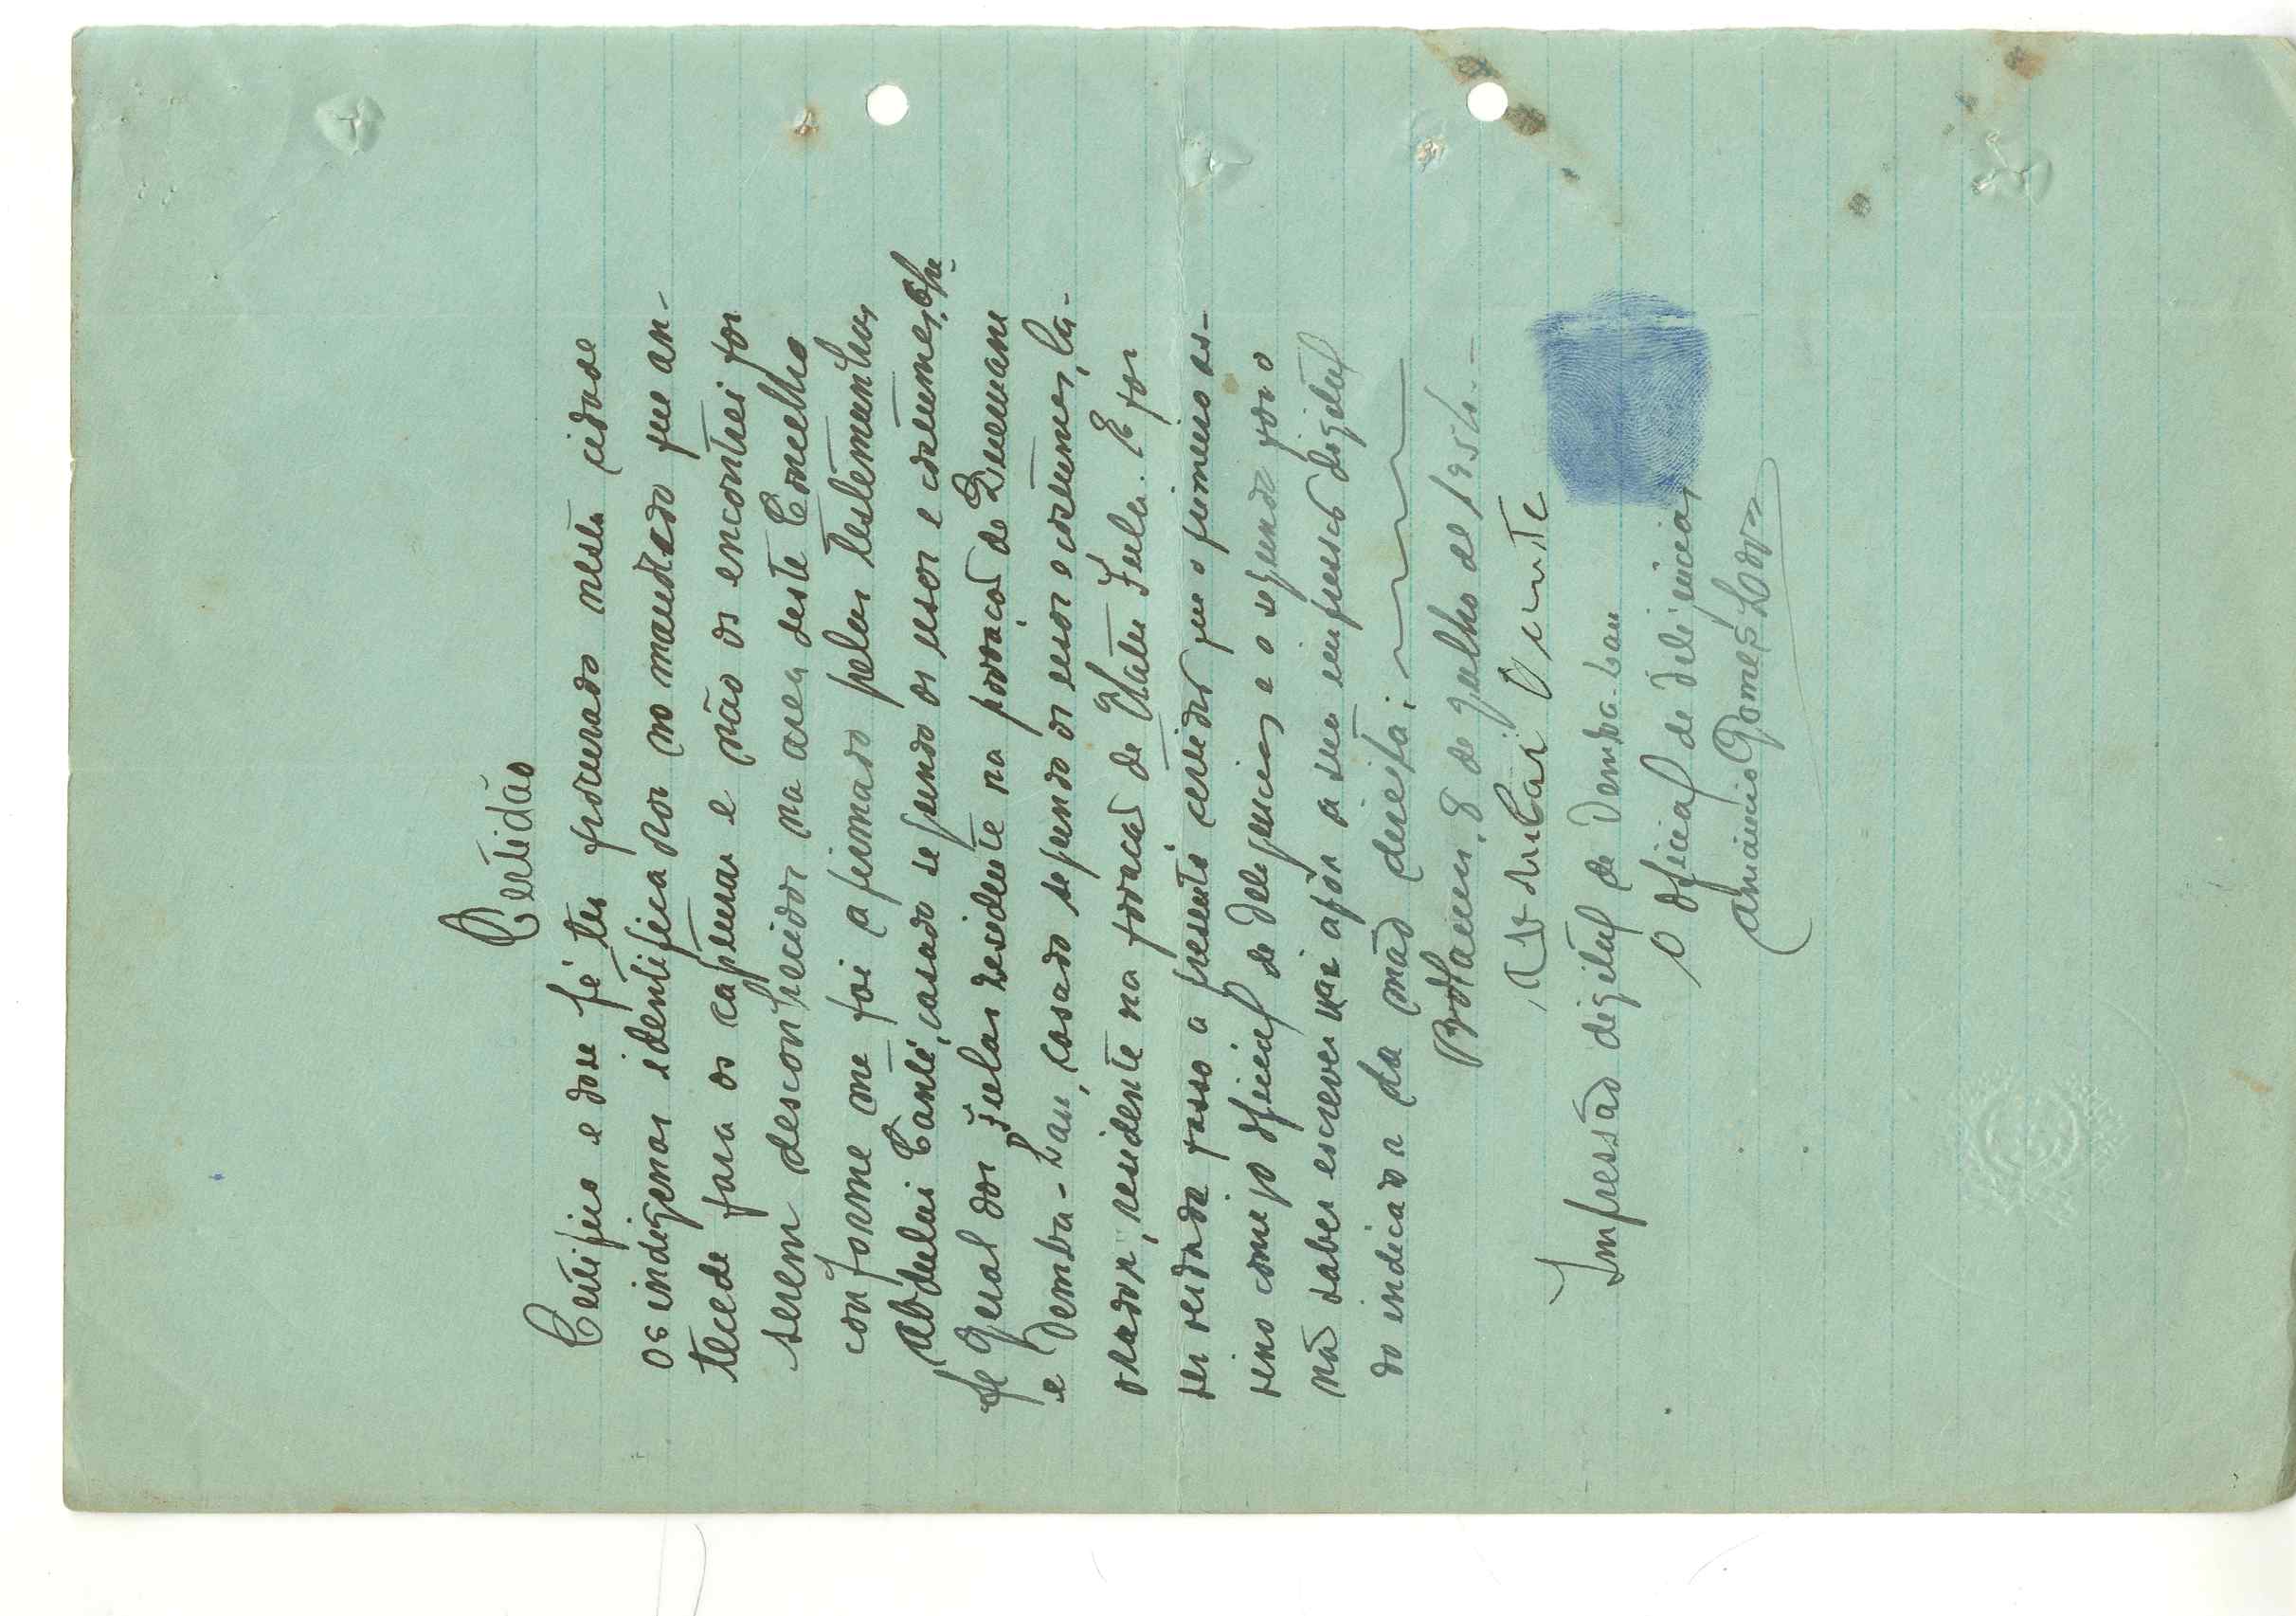 Certidão
Certifico e dou fé ter procurado nesta cidade
os indigenas identificados no mandado que an-
tecede para os capturar e não os encontrei por
serem desconhecidos na area deste Concelho
conforme me foi afirmado pelas testemunhas
Abdulai Canté, casado segundo os usos e costumes, che-
fe geral dos Fulas residente na povoação de
e Demba-Bau, casado segundo os usos e costumes, la-
vrador, residente na povoação de Fula. E por
ser verdade passo a presente certidão que o primeiro as-
sina comigo oficial de deligencias e o segundo por
não saber escrever vai apôr a sua impressão digital
do indicador da mão direita;
8 de Julho de 1954.-
Abdulai
Impressão digital de Demba-Bau
O oficial de diligencias
Amancio Gomes